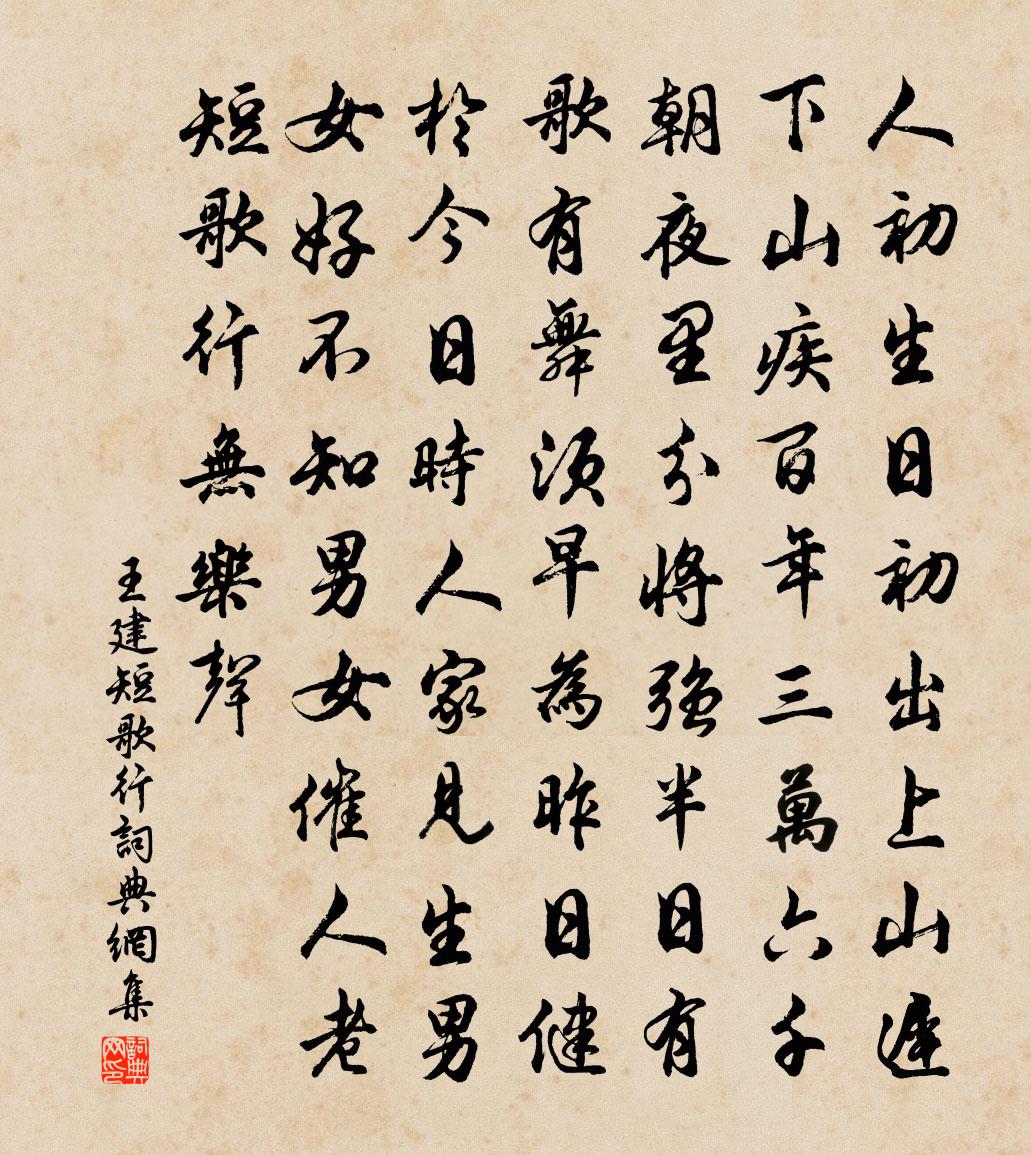 人初生日初出上山遲
下山疾百年三萬六千
朝夜里分將強半日有
歌有舞須早為昨日健
於今日時人家見生男
女好不知男女催人老
短歌行無樂聲
王建短歌行詞典網集
詞典网印